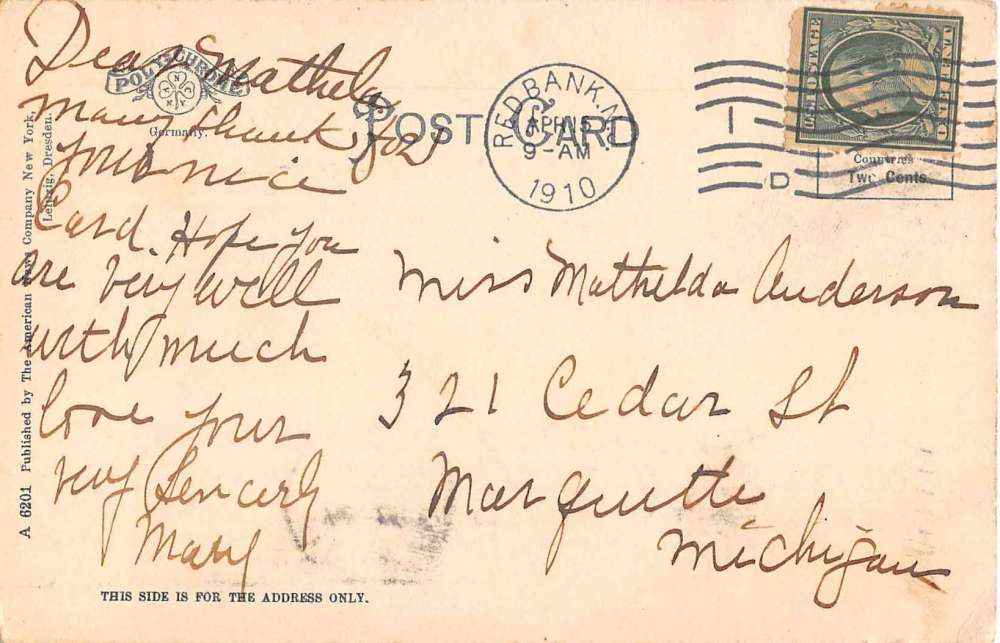 Dear Mathelda
Many thanks for
your nice
Card. Hope you
are very well
with much
love your
very Sencerly
Mary
POLY-CHROME
ANCNY
Germany.
POST CARD
RED BANK, N.J.
APR 5
9-AM
1910
1
D
U.S. POSTAGE
ONE CENT
Countries
Two Cents
Miss Mathelda Anderson
321 Cedar St
Marquette
Michigan
A 6201 Published by The American News Company New York,
Leipzig, Dresden.
THIS SIDE IS FOR THE ADDRESS ONLY.